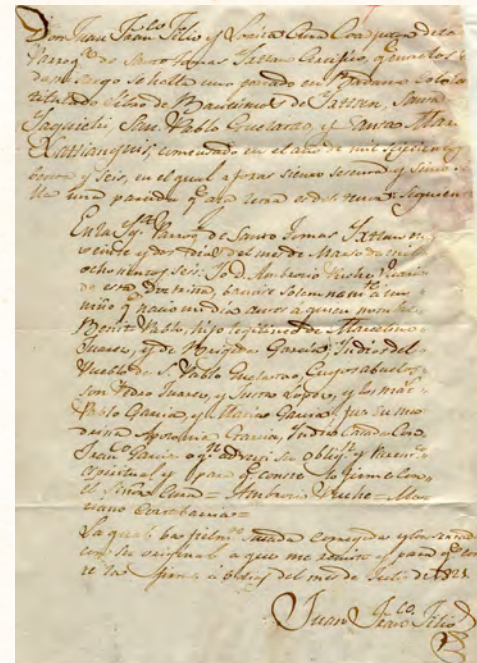 Don Juan Fran.co Filio y Loaiza Cura Coadjutor de la
Parroq.a de Santo Tomas Ixtlan Certifico, q.e en el
de mi cargo se halla uno forrado en Badana
titulado Libro de Bautismos de Ixtlan, Santa
San Pablo Guelatao, y Santa Maria
comensado en el año de mil
y seis, en el qual a foxas ciento sesenta y
una partida q.e a la letra es del tenor siguiente
En la Parroq.l de Santo Tomas Ixtlan en
veinte y dos dias del mes de Marzo de mil
ochocientos seis. Yo D. Ambrosio Puche
de esta Doctrina, bautisé solemnem.te á un
niño q.e nació un dia antes a quien nombré
Benito Pablo, hijo legitimo de Marcelino
Juares, y de Brigida Garcia, Indios del
Pueblo de S. Pablo Guelatao, Cuyos abuelos
son Pedro Juares, y Justa Lopes, y los mat.
Pablo Garcia y Maria Garcia, fue su ma
drina Apolonia Garcia, India Casada Con
Fran.co Garcia a q.n advertí su oblig.n y
espiritual, y para q.e conste lo firmé Con
el Señor Cura = Ambrosio Puche = Ma
riano Cortabarria =
La qual ba fielm.te sacada corregida y
con su original a que me remito y para q.e
te la firmé á dias del mes de Julio de
Juan Fran.co Filio